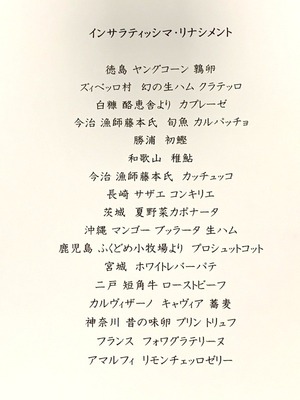 インサラティッシマ・リナシメント
徳島 ヤングコーン 鶉卵
ズィベッロ村 幻の生ハム クラテッロ
白糠 酪恵舎より カプレーゼ
今治 漁師藤本氏 旬魚 カルパッチョ
勝浦 初鰹
和歌山 稚鮎
今治 漁師藤本氏 カッチュッコ
長崎 サザエ コンキリエ
茨城 夏野菜カポナータ
沖縄 マンゴー ブッラータ 生ハム
鹿児島 ふくどめ小牧場より プロシュットコット
宮城 ホワイトレバーパテ
二戸 短角牛 ローストビーフ
カルヴィザーノ キャヴィア 蕎麦
神奈川 昔の味卵 プリン トリュフ
フランス フォワグラテリーヌ
アマルフィ リモンチェッロゼリー